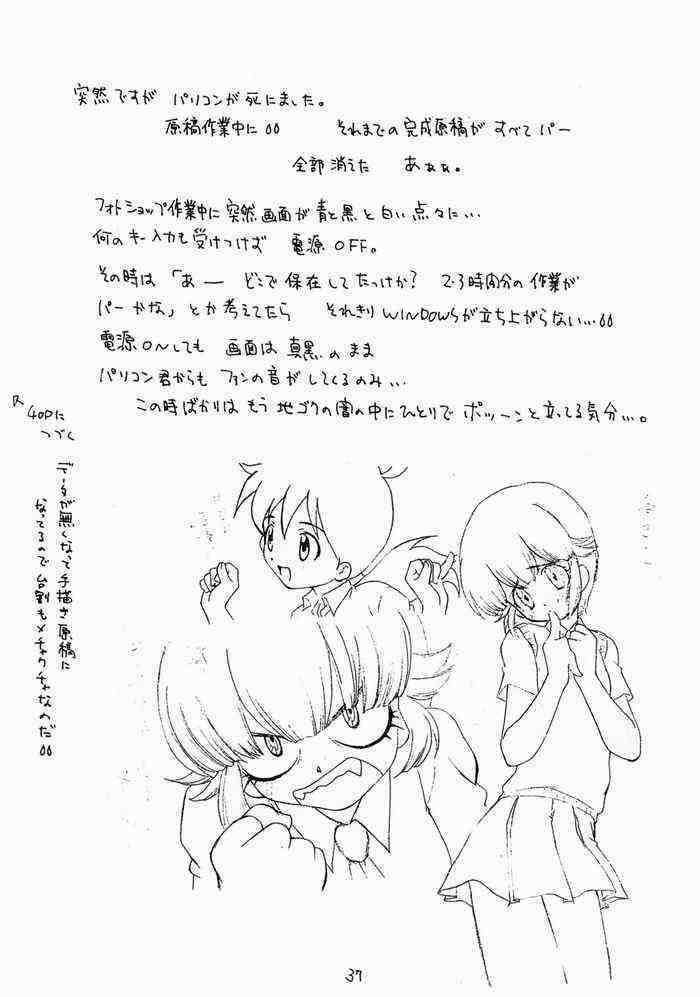 突然ですが パソコンが死にました。
原稿作業中に それまでの完成原稿が すべてパー
全部消えた あぁぁ。
フォトショップ作業中に突然画面が青と黒と白い点々に…
何のキー入力も受けつけず 電源OFF。
その時は「あー どこで保存してたっけか? 2・3時間分の作業が
パーかな」とか考えてたら それきりWINDOWSが立ち上がらない…
電源ONしても 画面は真黒のまま
パソコン君からも ファンの音がしてくるのみ…
この時ばかりは もう地ゴクの闇の中にひとりで ポツーンと立ってる気分…。
40Pに
つづく
データが無くなって手描き原稿に
なってるので台割もメチャクチャなのだ
37